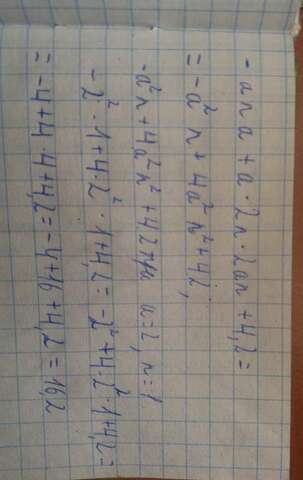 - ana + a · 2n · 2an + 4,2 =
= -a² n + 4a² n² + 4,2,
-a²n + 4a² n² + 4,2 при a=2, n=1
-2² · 1 + 4 · 2² · 1 + 4,2 = -2² + 4 · 2² · 1 + 4,2 =
= -4 + 4 · 4 + 4,2 = -4 + 16 + 4,2 = 16,2